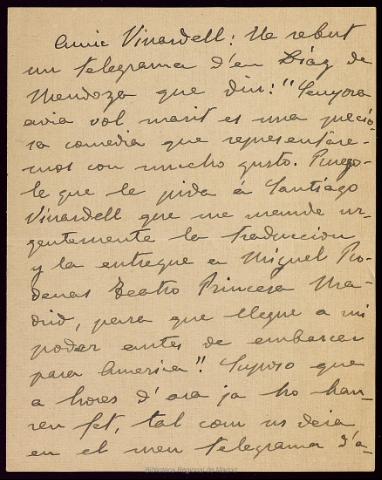 Amic Vinardell: He rebut
un telegrama d'en Díaz de
Mendoza que diu: "Senyora
avia vol marit es una precio
sa comedia que representare-
mos con mucho gusto. Ruego-
le que le pida á Santiago
Vinardell que me mande ur-
gentemente la traduccion
y la entregue a Miguel Ro-
denas Teatro Princesa Ma-
drid, para que llegue a mi
poder antes de embarcar
para America". Suposo que
a hores d'ara ja ho hau-
ren fet, tal com us deia
en el meu telegrama d'a-